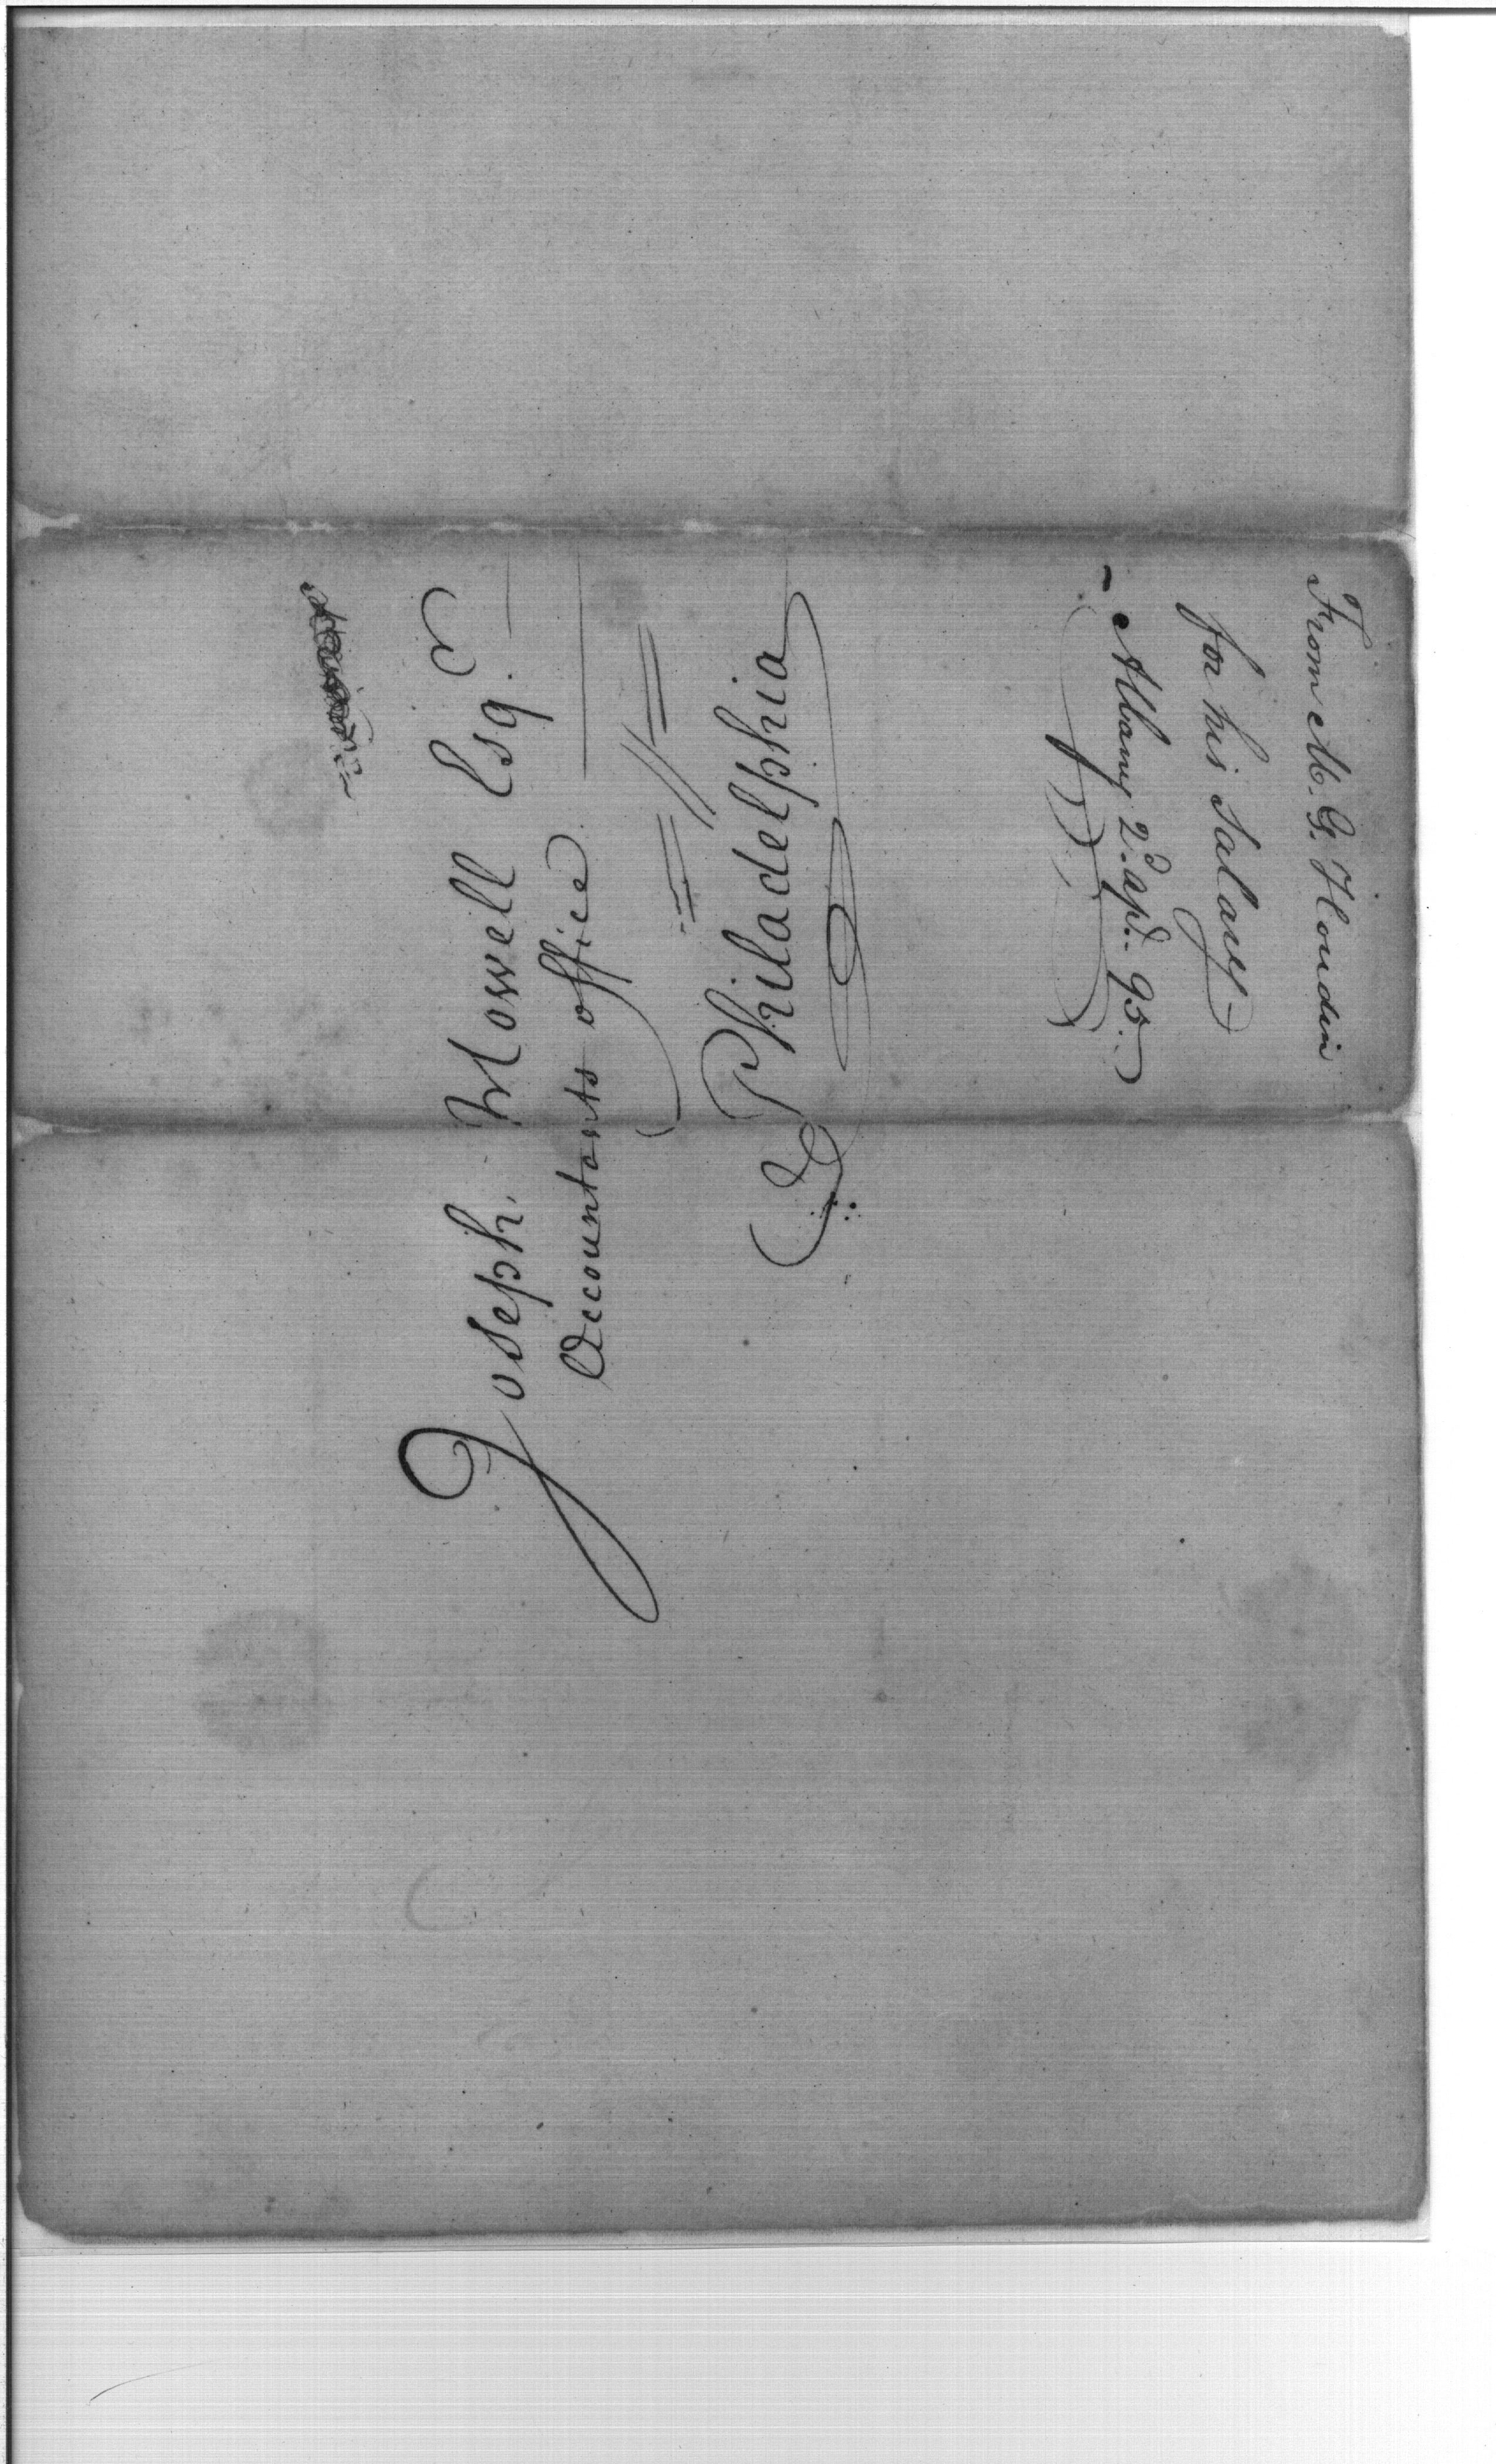 Joseph Howell Esqr
Accountants office
Philadelphia
From M. G. Houdin
for his Salary
Albany 2d apl. 95.